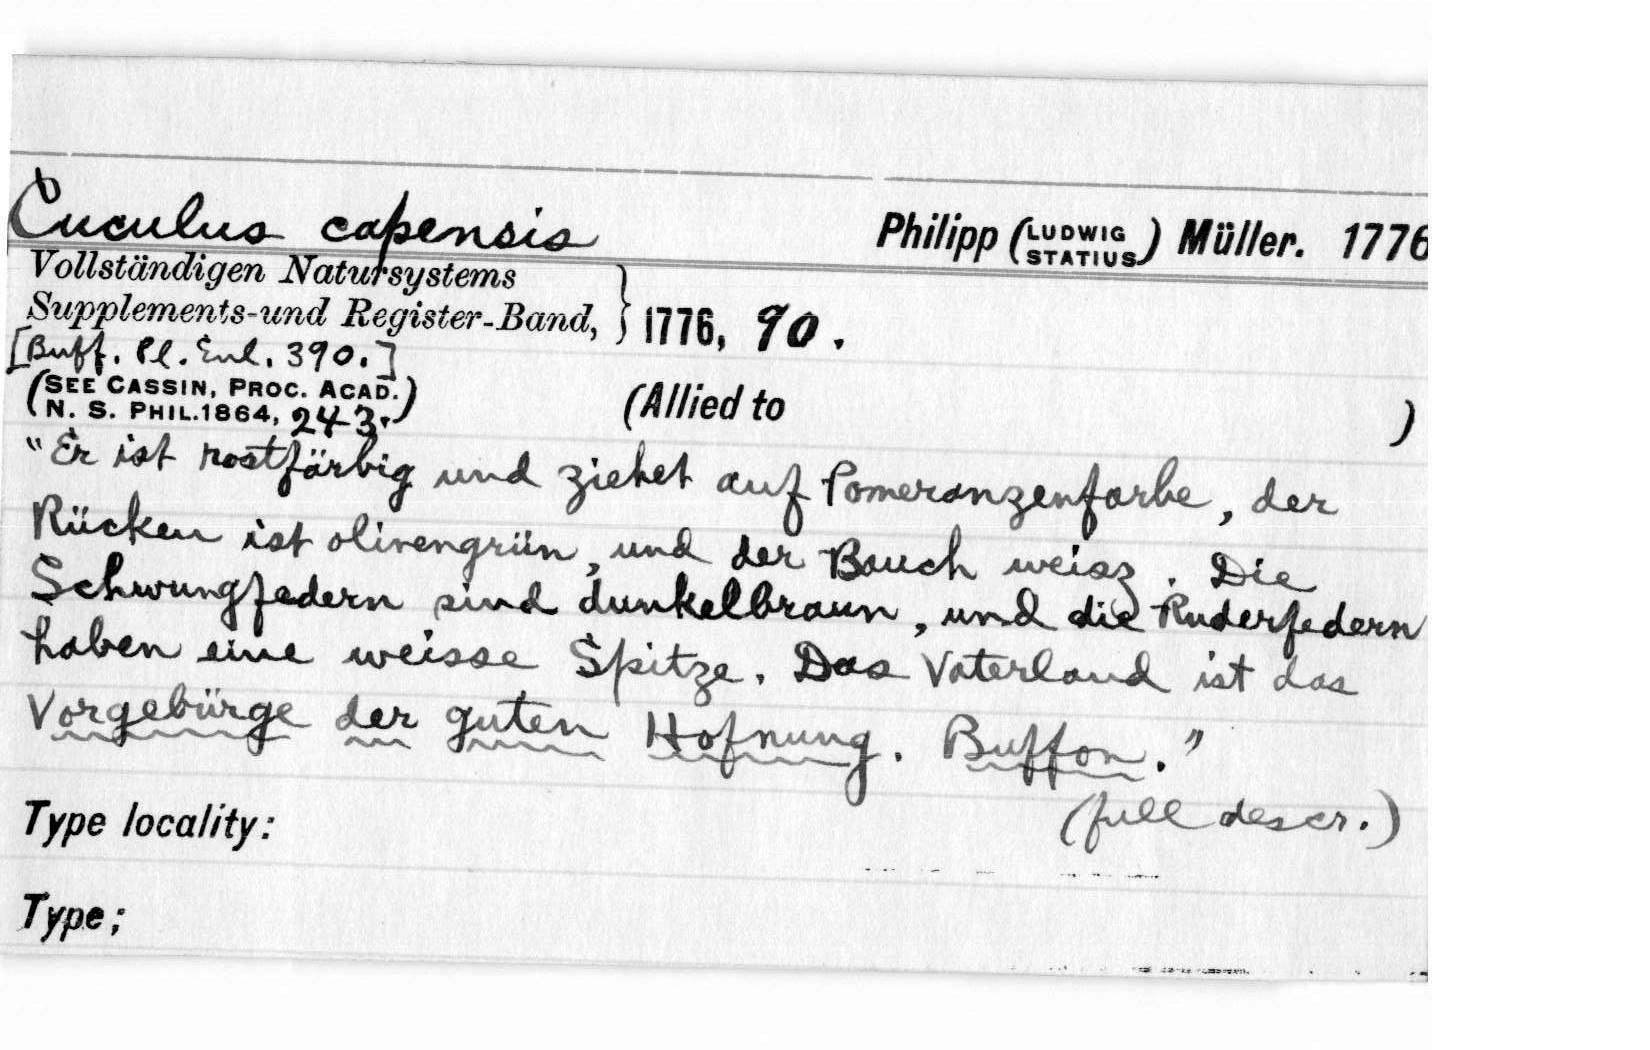 Cuculus capensis Philipp (LUDWIG STATIUS) Müller. 1776
Vollständigen Natursystems
Supplements-und Register-Band, } 1776, 90.
[Buff. Pl. Enl. 390.]
(SEE CASSIN, PROC. ACAD.
N. S. PHIL. 1864, 243.) (Allied to )
"Er ist rostfärbig und ziehet auf Pomeranzenfarbe, der
Rücken ist olivengrün, und der Bauch weisz. Die
Schwungfedern sind dunkelbraun, und die Ruderfedern
haben eine weisse Spitze. Das Vaterland ist das
Vorgebürge der guten Hofnung. Buffon."
(full descr.)
Type locality:
Type;